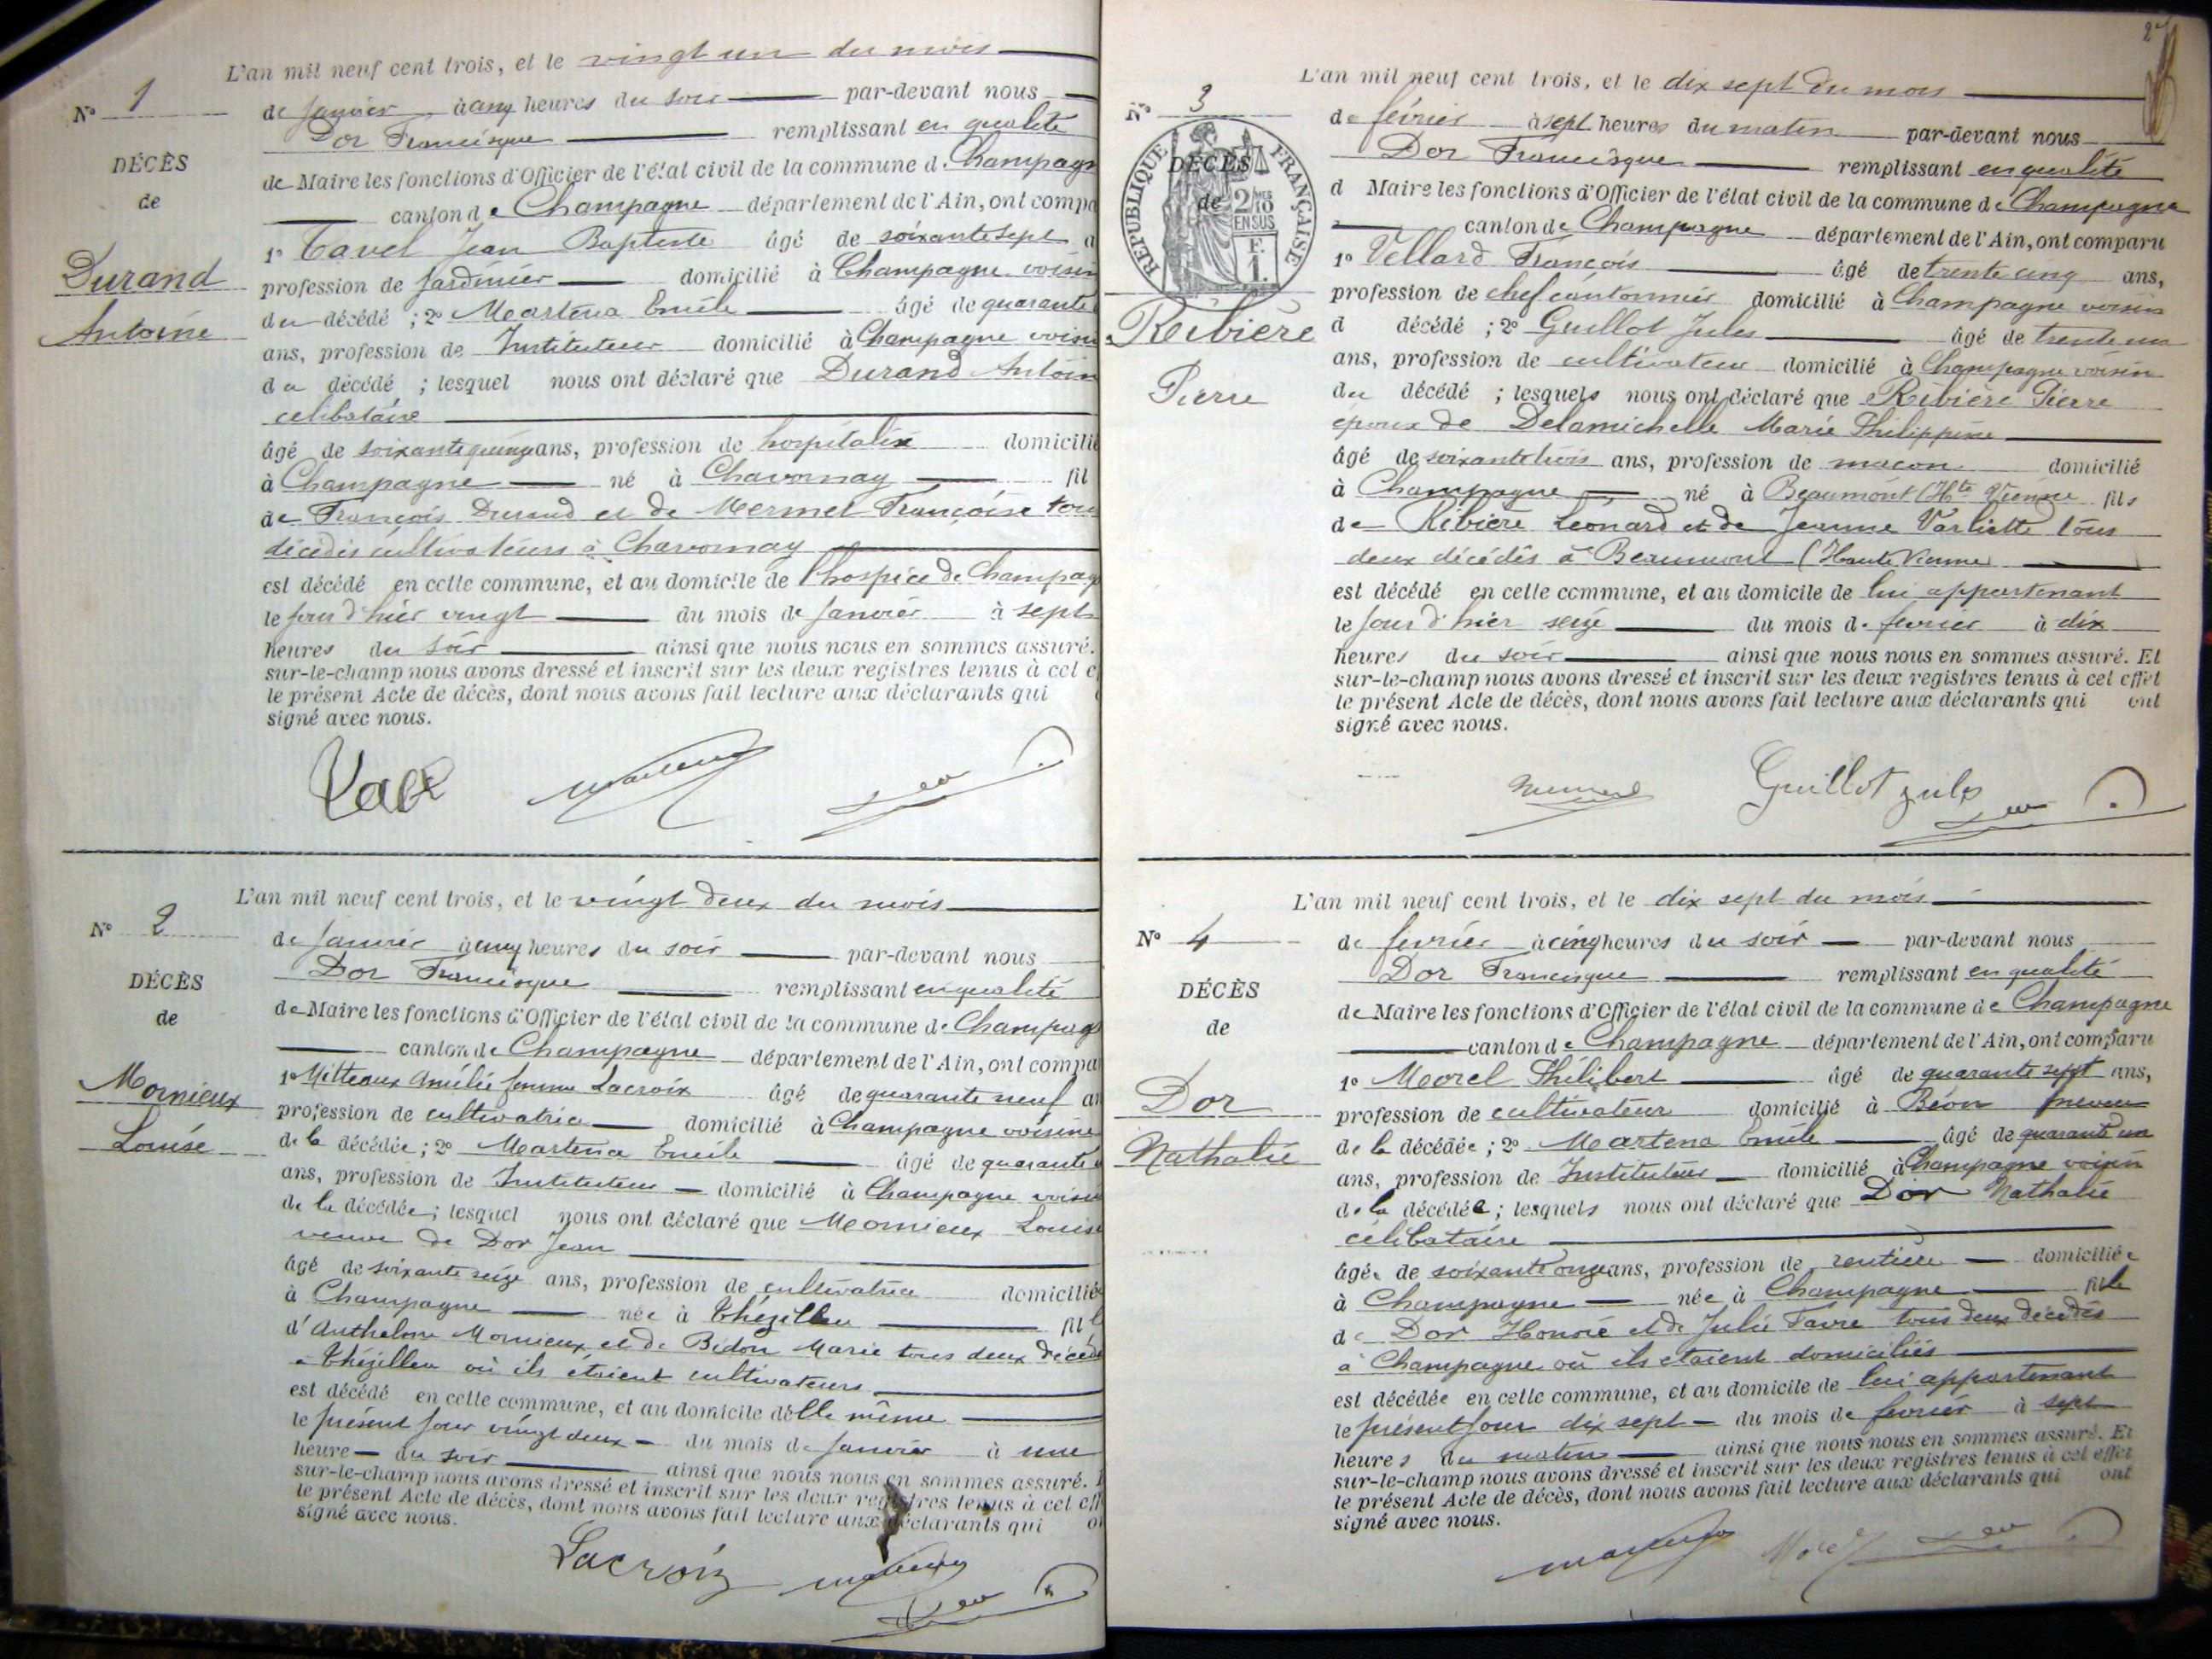 L'an mil neuf cent trois, et le vingt un du mois
N° 1
de Janvier à cinq heures du soir par-devant nous
Dor Francisque remplissant en qualité
DÉCÈS
de Maire les fonctions d'Officier de l'état civil de la commune de Champagn
de
canton de Champagne département de l'Ain, ont compa
1° Tavel Jean Baptiste âgé de soixante sept a
Durand
profession de Jardinier domicilié à Champagne voisin
Antoine
du décédé ; 2° Martena Emile âgé de quarante
ans, profession de Instituteur domicilié à Champagne voisin
du décédé ; lesquel nous ont déclaré que Durand Antoin
célibataire
âgé de soixante quinze ans, profession de hospitalisé domicilié
à Champagne né à Chavornay fil
de François Durand et de Mermet Françoise tous
décédés cultivateurs à Chavornay
est décédé en cette commune, et au domicile de l'hospice de Champag
le jour d'hier vingt du mois de Janvier à sept
heures du soir ainsi que nous nous en sommes assuré.
sur-le-champ nous avons dressé et inscrit sur les deux registres tenus à cet e
le présent Acte de décès, dont nous avons fait lecture aux déclarants qui
signé avec nous.
L'an mil neuf cent trois, et le vingt deux du mois
N° 2
de Janvier à cinq heures du soir par-devant nous
Dor Francisque remplissant en qualité
DÉCÈS
de Maire les fonctions d'Officier de l'état civil de la commune de Champag
de
canton de Champagne département de l'Ain, ont compa
1° Mitteaux Amélie femme Lacroix âgé de quarante neuf an
Mornieux
profession de cultivatrice domicilié à Champagne voisine
Louise
de la décédée ; 2° Martena Emile âgé de quarante
ans, profession de Instituteur domicilié à Champagne voisin
de la décédée ; lesquel nous ont déclaré que Mornieux Louise
veuve de Dor Jean
âgé de soixante seize ans, profession de cultivatrice domicilié
à Champagne née à Thézillieu fil
d'Anthelme Mornieux et de Bidon Marie tous deux décédé
à Thézillieu où ils étaient cultivateurs
est décédé en cette commune, et au domicile d'elle même
le présent jour vingt deux du mois de Janvier à une
heure du soir ainsi que nous nous en sommes assuré.
sur-le-champ nous avons dressé et inscrit sur les deux registres tenus à cet eff
le présent Acte de décès, dont nous avons fait lecture aux déclarants qui
signé avec nous.
Lacroix
L'an mil neuf cent trois, et le dix sept du mois
N° 3
de février à sept heures du matin par-devant nous
Dor Francisque remplissant en qualité
DÉCÈS
de
RÉPUBLIQUE FRANÇAISE
2/10 EN SUS
F. 1.
d Maire les fonctions d'Officier de l'état civil de la commune de Champagne
canton de Champagne département de l'Ain, ont comparu
1° Vellard François âgé de trente cinq ans,
profession de chef cantonnier domicilié à Champagne voisin
Reibière
d décédé ; 2° Guillot Jules âgé de trente un
ans, profession de cultivateur domicilié à Champagne voisin
Pierre
du décédé ; lesquels nous ont déclaré que Reibière Pierre
époux de Delamichelle Marie Philippine
âgé de soixante trois ans, profession de maçon domicilié
à Champagne né à Beaumont (Hte Vienne fils
de Ribière Léonard et de Jeanne Varliette tous
deux décédés à Beaumont (Haute Vienne)
est décédé en cette commune, et au domicile de lui appartenant
le jour d'hier seize du mois d. février à dix
heures du soir ainsi que nous nous en sommes assuré. Et
sur-le-champ nous avons dressé et inscrit sur les deux registres tenus à cet effet
le présent Acte de décès, dont nous avons fait lecture aux déclarants qui ont
signé avec nous.
Guillot Jules
L'an mil neuf cent trois, et le dix sept du mois
N° 4
de février à cinq heures du soir par-devant nous
Dor Francisque remplissant en qualité
DÉCÈS
de Maire les fonctions d'Officier de l'état civil de la commune de Champagne
de
canton de Champagne département de l'Ain, ont comparu
1° Morel Philibert âgé de quarante sept ans,
Dor
profession de cultivateur domicilié à Béon neveu
Nathalie
de la décédée ; 2° Martena Emile âgé de quarante un
ans, profession de Instituteur domicilié à Champagne voisin
de la décédée ; lesquels nous ont déclaré que Dor Nathalie
célibataire
âgée de soixante onze ans, profession de rentière domiciliée
à Champagne née à Champagne fille
de Dor Honoré et de Julie Favre tous deux décédés
à Champagne où ils étaient domiciliés
est décédée en cette commune, et au domicile de lui appartenant
le présent jour dix sept du mois de février à sept
heures du matin ainsi que nous nous en sommes assuré. Et
sur-le-champ nous avons dressé et inscrit sur les deux registres tenus à cet effet
le présent Acte de décès, dont nous avons fait lecture aux déclarants qui ont
signé avec nous.